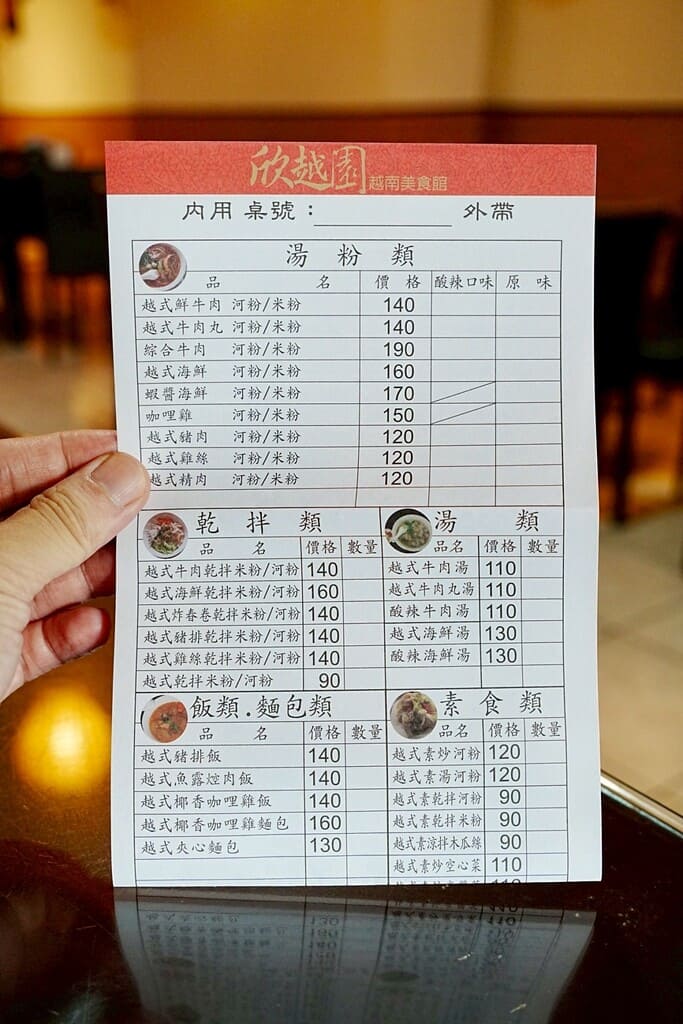 欣越園 越南美食館
內用 桌號：________ 外帶
湯粉類
品 名 價格 酸辣口味 原味
越式鮮牛肉 河粉/米粉 140
越式牛肉丸 河粉/米粉 140
綜合牛肉 河粉/米粉 190
越式海鮮 河粉/米粉 160
蝦醬海鮮 河粉/米粉 170
咖哩雞 河粉/米粉 150
越式豬肉 河粉/米粉 120
越式雞絲 河粉/米粉 120
越式精肉 河粉/米粉 120
乾拌類
品 名 價格 數量
越式牛肉乾拌米粉/河粉 140
越式海鮮乾拌米粉/河粉 160
越式炸春卷乾拌米粉/河粉 140
越式豬排乾拌米粉/河粉 140
越式雞絲乾拌米粉/河粉 140
越式乾拌米粉/河粉 90
湯類
品名 價格 數量
越式牛肉湯 110
越式牛肉丸湯 110
酸辣牛肉湯 110
越式海鮮湯 130
酸辣海鮮湯 130
飯類.麵包類
品 名 價格 數量
越式豬排飯 140
越式魚露焢肉飯 140
越式椰香咖哩雞飯 140
越式椰香咖哩雞麵包 160
越式夾心麵包 130
素食類
品名 價格 數量
越式素炒河粉 120
越式素湯河粉 120
越式素乾拌河粉 90
越式素乾拌米粉 90
越式素涼拌木瓜絲 90
越式素炒空心菜 110
110